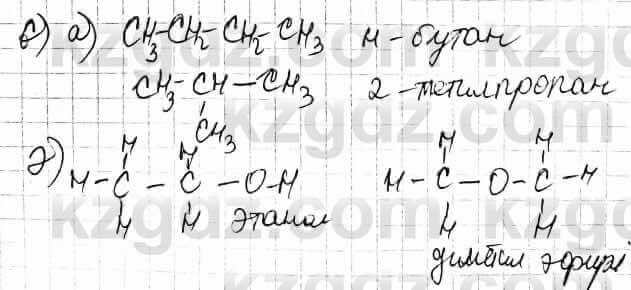 б) а) CH3-CH2-CH2-CH3 н-бутан
CH3-CH-CH3 2-метилпропан
CH3
ә) H H H H
H-C-C-O-H H-C-O-C-H
H H этанол H H
диметил эфирі
kzgdz.com